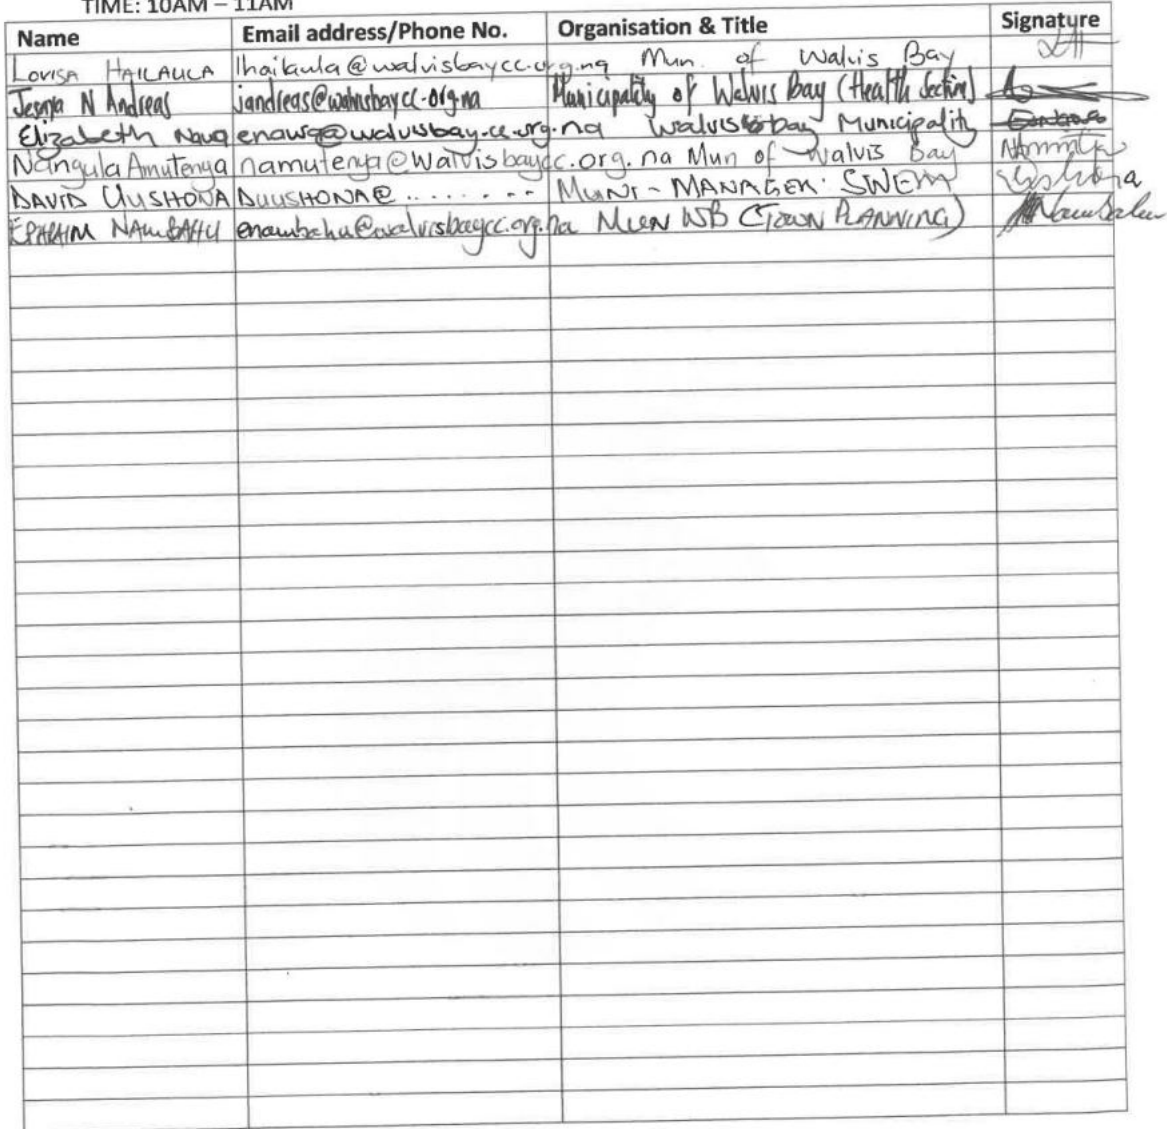 TIME: 10AM – 11AM
Name Email address/Phone No. Organisation & Title Signature
Lovisa HAILAULA lhailaula@walvisbaycc.org.na Mun. of Walvis Bay
N Andreas jandreas@walvisbaycc.org.na Municipality of Walvis Bay (Health Section)
Elizabeth Nawa enawa@walvisbay.cc.org.na Walvisbay Municipality
Nangula Amutenya namutenya@walvisbaycc.org.na Mun of Walvis Bay
DAVID UUSHONA DUUSHONA@........ MUNI - MANAGER: SWEM
EPHRAIM NAMBAHU enambahu@walvisbaycc.org.na MUN WB (TOWN PLANNING) Nambahu